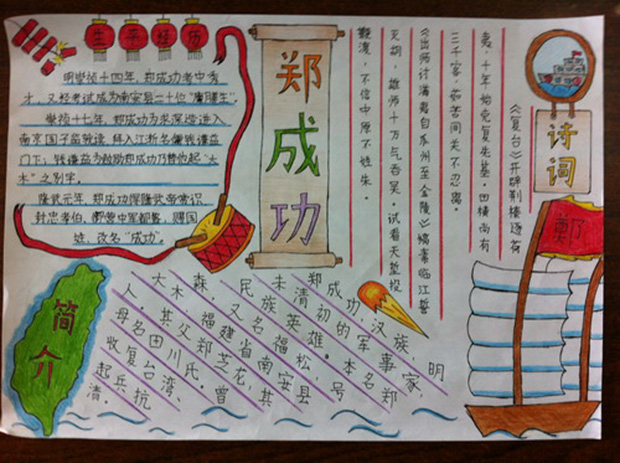 生平经历
明崇祯十四年,郑成功考中秀
才,又经考试成为南安县二十位“廪膳生”。
崇祯十七年,郑成功为求深造进入
南京国子监就读,拜入江浙名儒钱谦益
门下,钱谦益为勉励郑成功乃替他起“大
木”之别字。
隆武元年,郑成功深隆武帝赏识,
封忠孝伯,御营中军都督,赐国
姓,改名“成功”。
郑成功
诗词
《复台》开辟荆榛逐荷
夷,十年始克复先基。田横尚有
三千客,茹苦间关不忍离。
《出师讨满夷自瓜州至金陵》缟素临江誓
灭胡,雄师十万气吞吴。试看天堑投
鞭渡,不信中原不姓朱。
郑
简介
郑成功,汉族,明
末清初的军事家,
民族英雄。本名郑
森,又名福松,号
大木,福建省南安县
人。其父郑芝龙,其
母名田川氏。曾
收复台湾,
起兵抗
清。